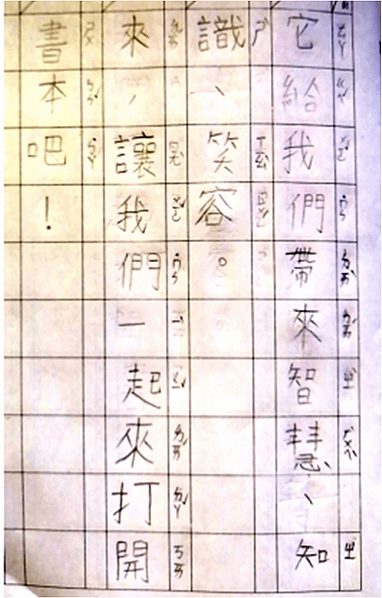 它給我們帶來智慧、知
識、笑容。
來，讓我們一起來打開
書本吧！